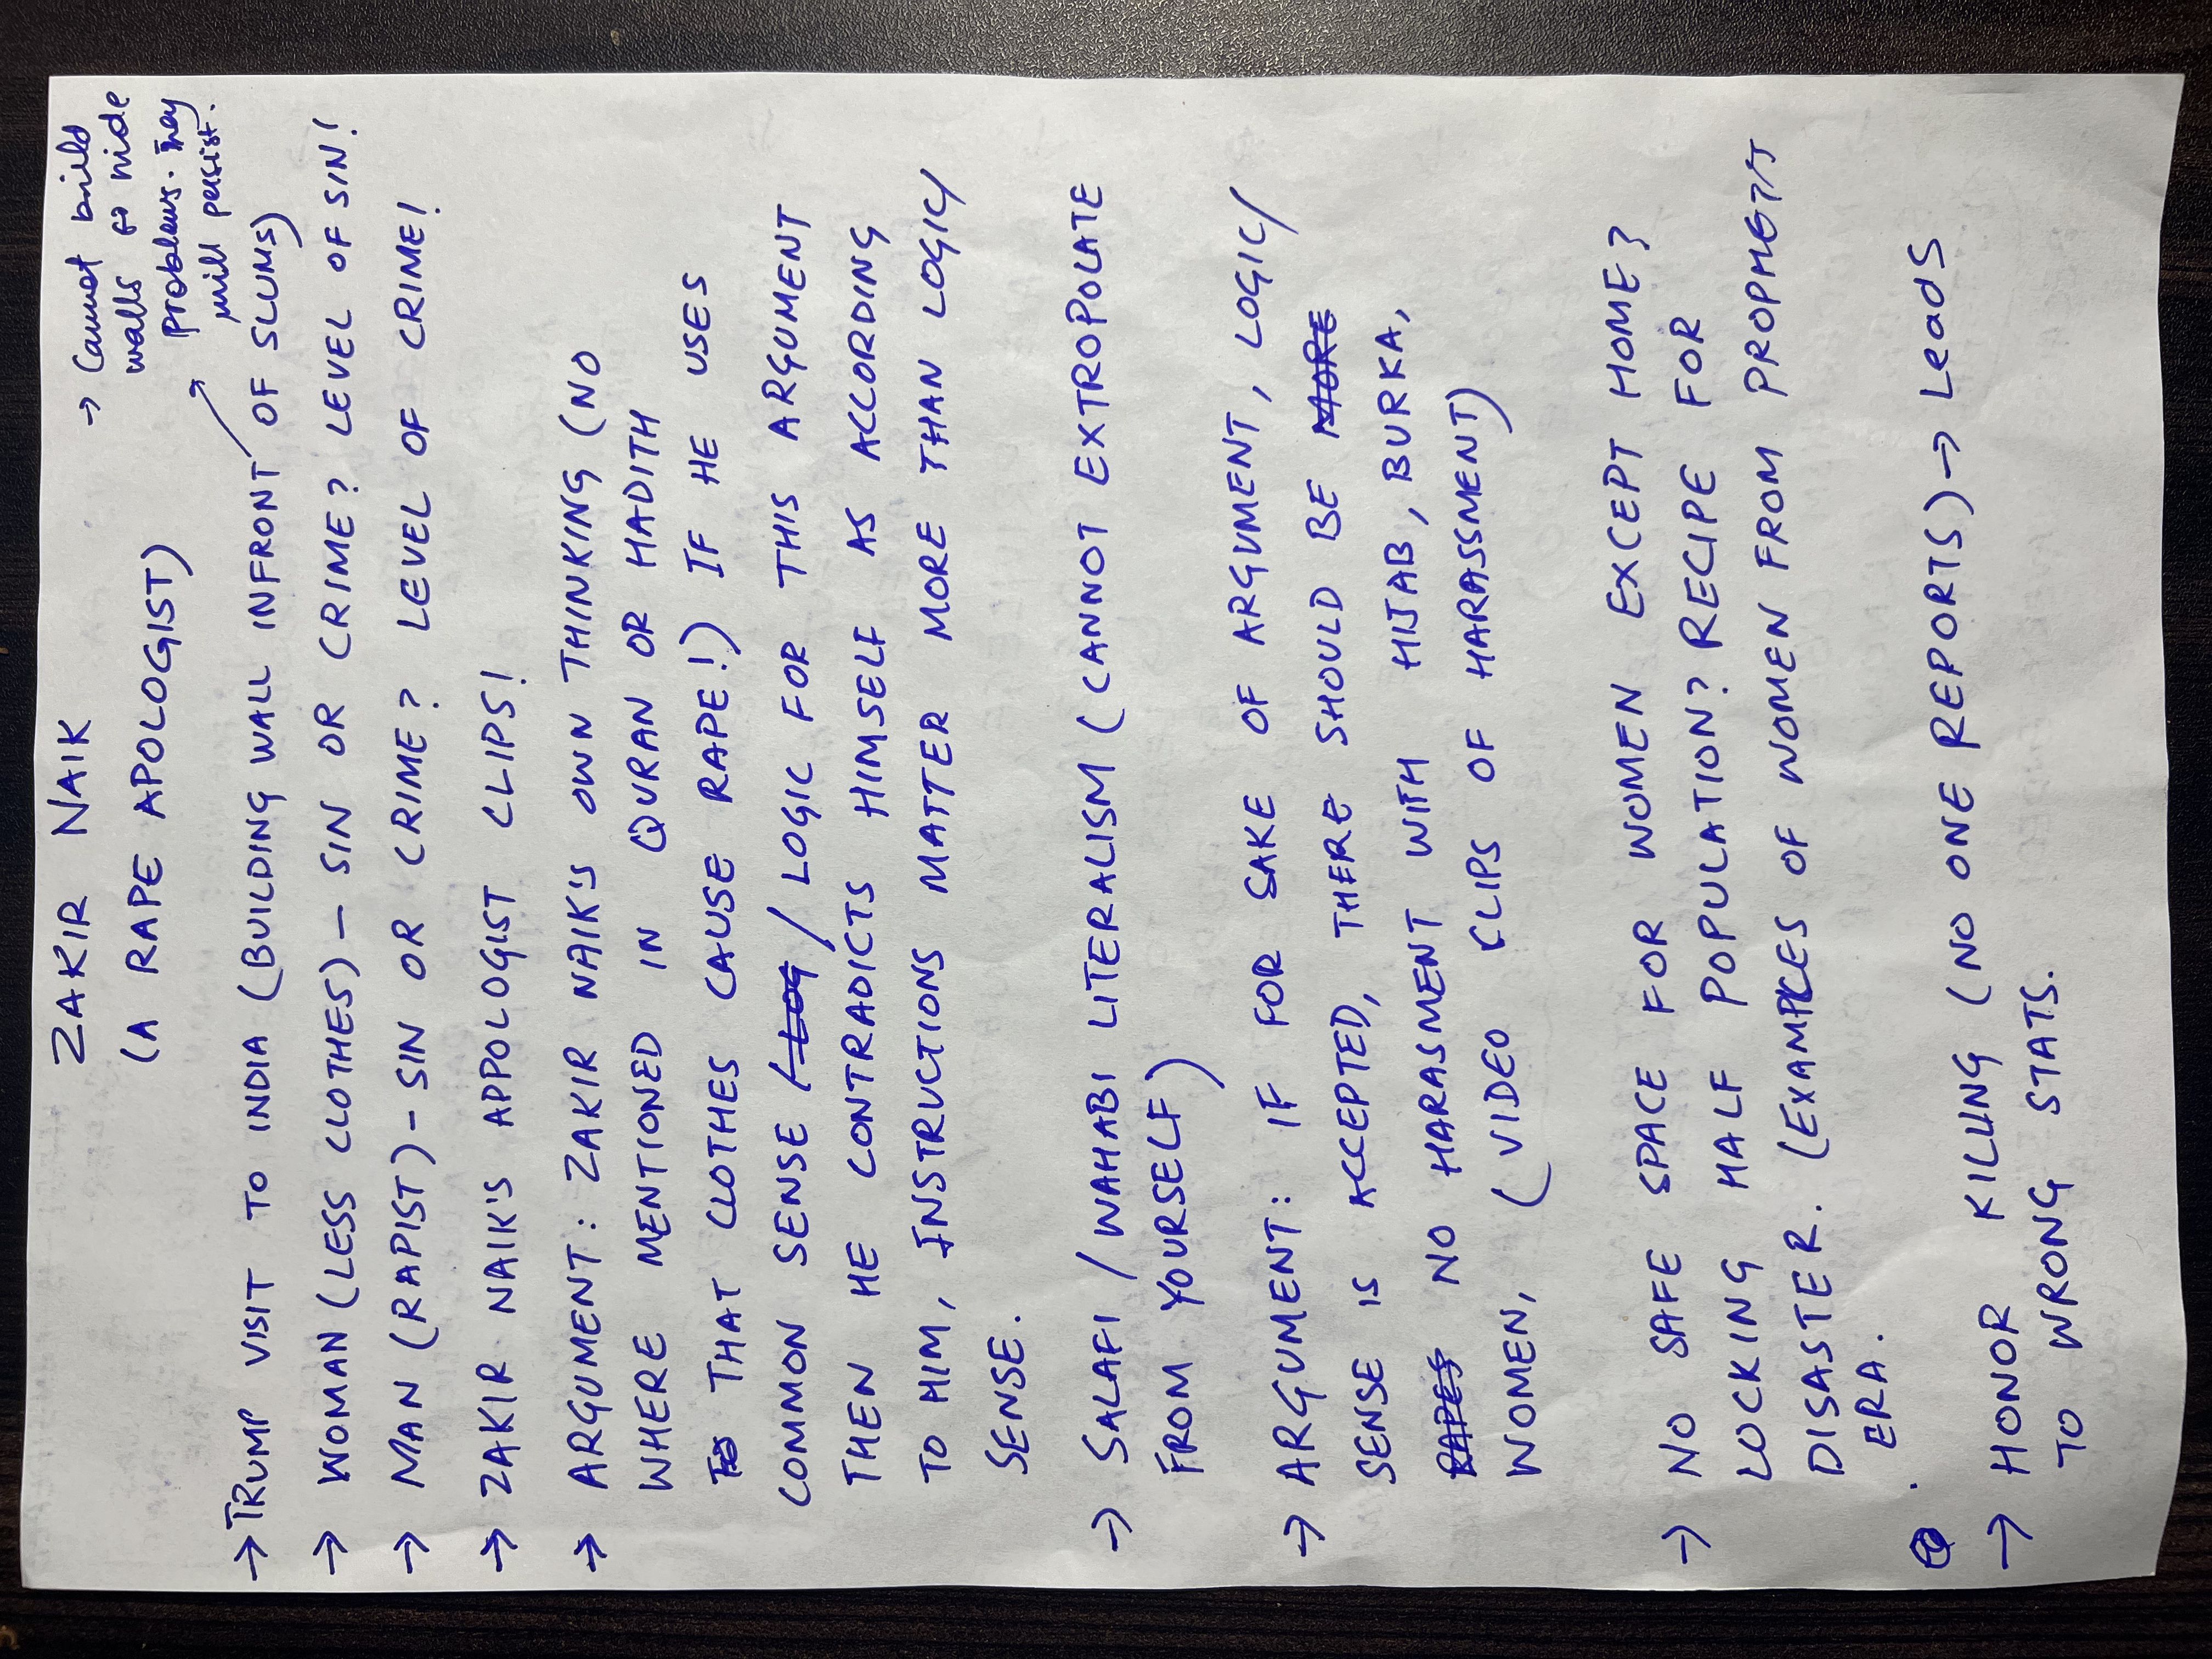 ZAKIR NAIK
(A RAPE APOLOGIST)
→ Cannot build
walls to hide
problems. They
will persist.
→ TRUMP VISIT TO INDIA (BUILDING WALL INFRONT OF SLUMS)
→ WOMAN (LESS CLOTHES) - SIN OR CRIME? LEVEL OF SIN!
→ MAN (RAPIST) - SIN OR CRIME? LEVEL OF CRIME!
→ ZAKIR NAIK'S APPOLOGIST CLIPS!
→ ARGUMENT: ZAKIR NAIK'S OWN THINKING (NO
WHERE MENTIONED IN QURAN OR HADITH
THAT CLOTHES CAUSE RAPE!) IF HE USES
COMMON SENSE / LOGIC FOR THIS ARGUMENT
THEN HE CONTRADICTS HIMSELF AS ACCORDING
TO HIM, INSTRUCTIONS MATTER MORE THAN LOGIC/
SENSE.
→ SALAFI / WAHABI LITERALISM (CANNOT EXTROPOLATE
FROM YOURSELF)
→ ARGUMENT: IF FOR SAKE OF ARGUMENT, LOGIC/
SENSE IS ACCEPTED, THERE SHOULD BE MORE
RAPES NO HARASMENT WITH HIJAB, BURKA,
WOMEN, (VIDEO CLIPS OF HARASSMENT)
→ NO SAFE SPACE FOR WOMEN EXCEPT HOME?
LOCKING HALF POPULATION? RECIPE FOR
DISASTER. (EXAMPLES OF WOMEN FROM PROPHET'S
ERA.
→ HONOR KILLING (NO ONE REPORTS) → Leads
TO WRONG STATS.